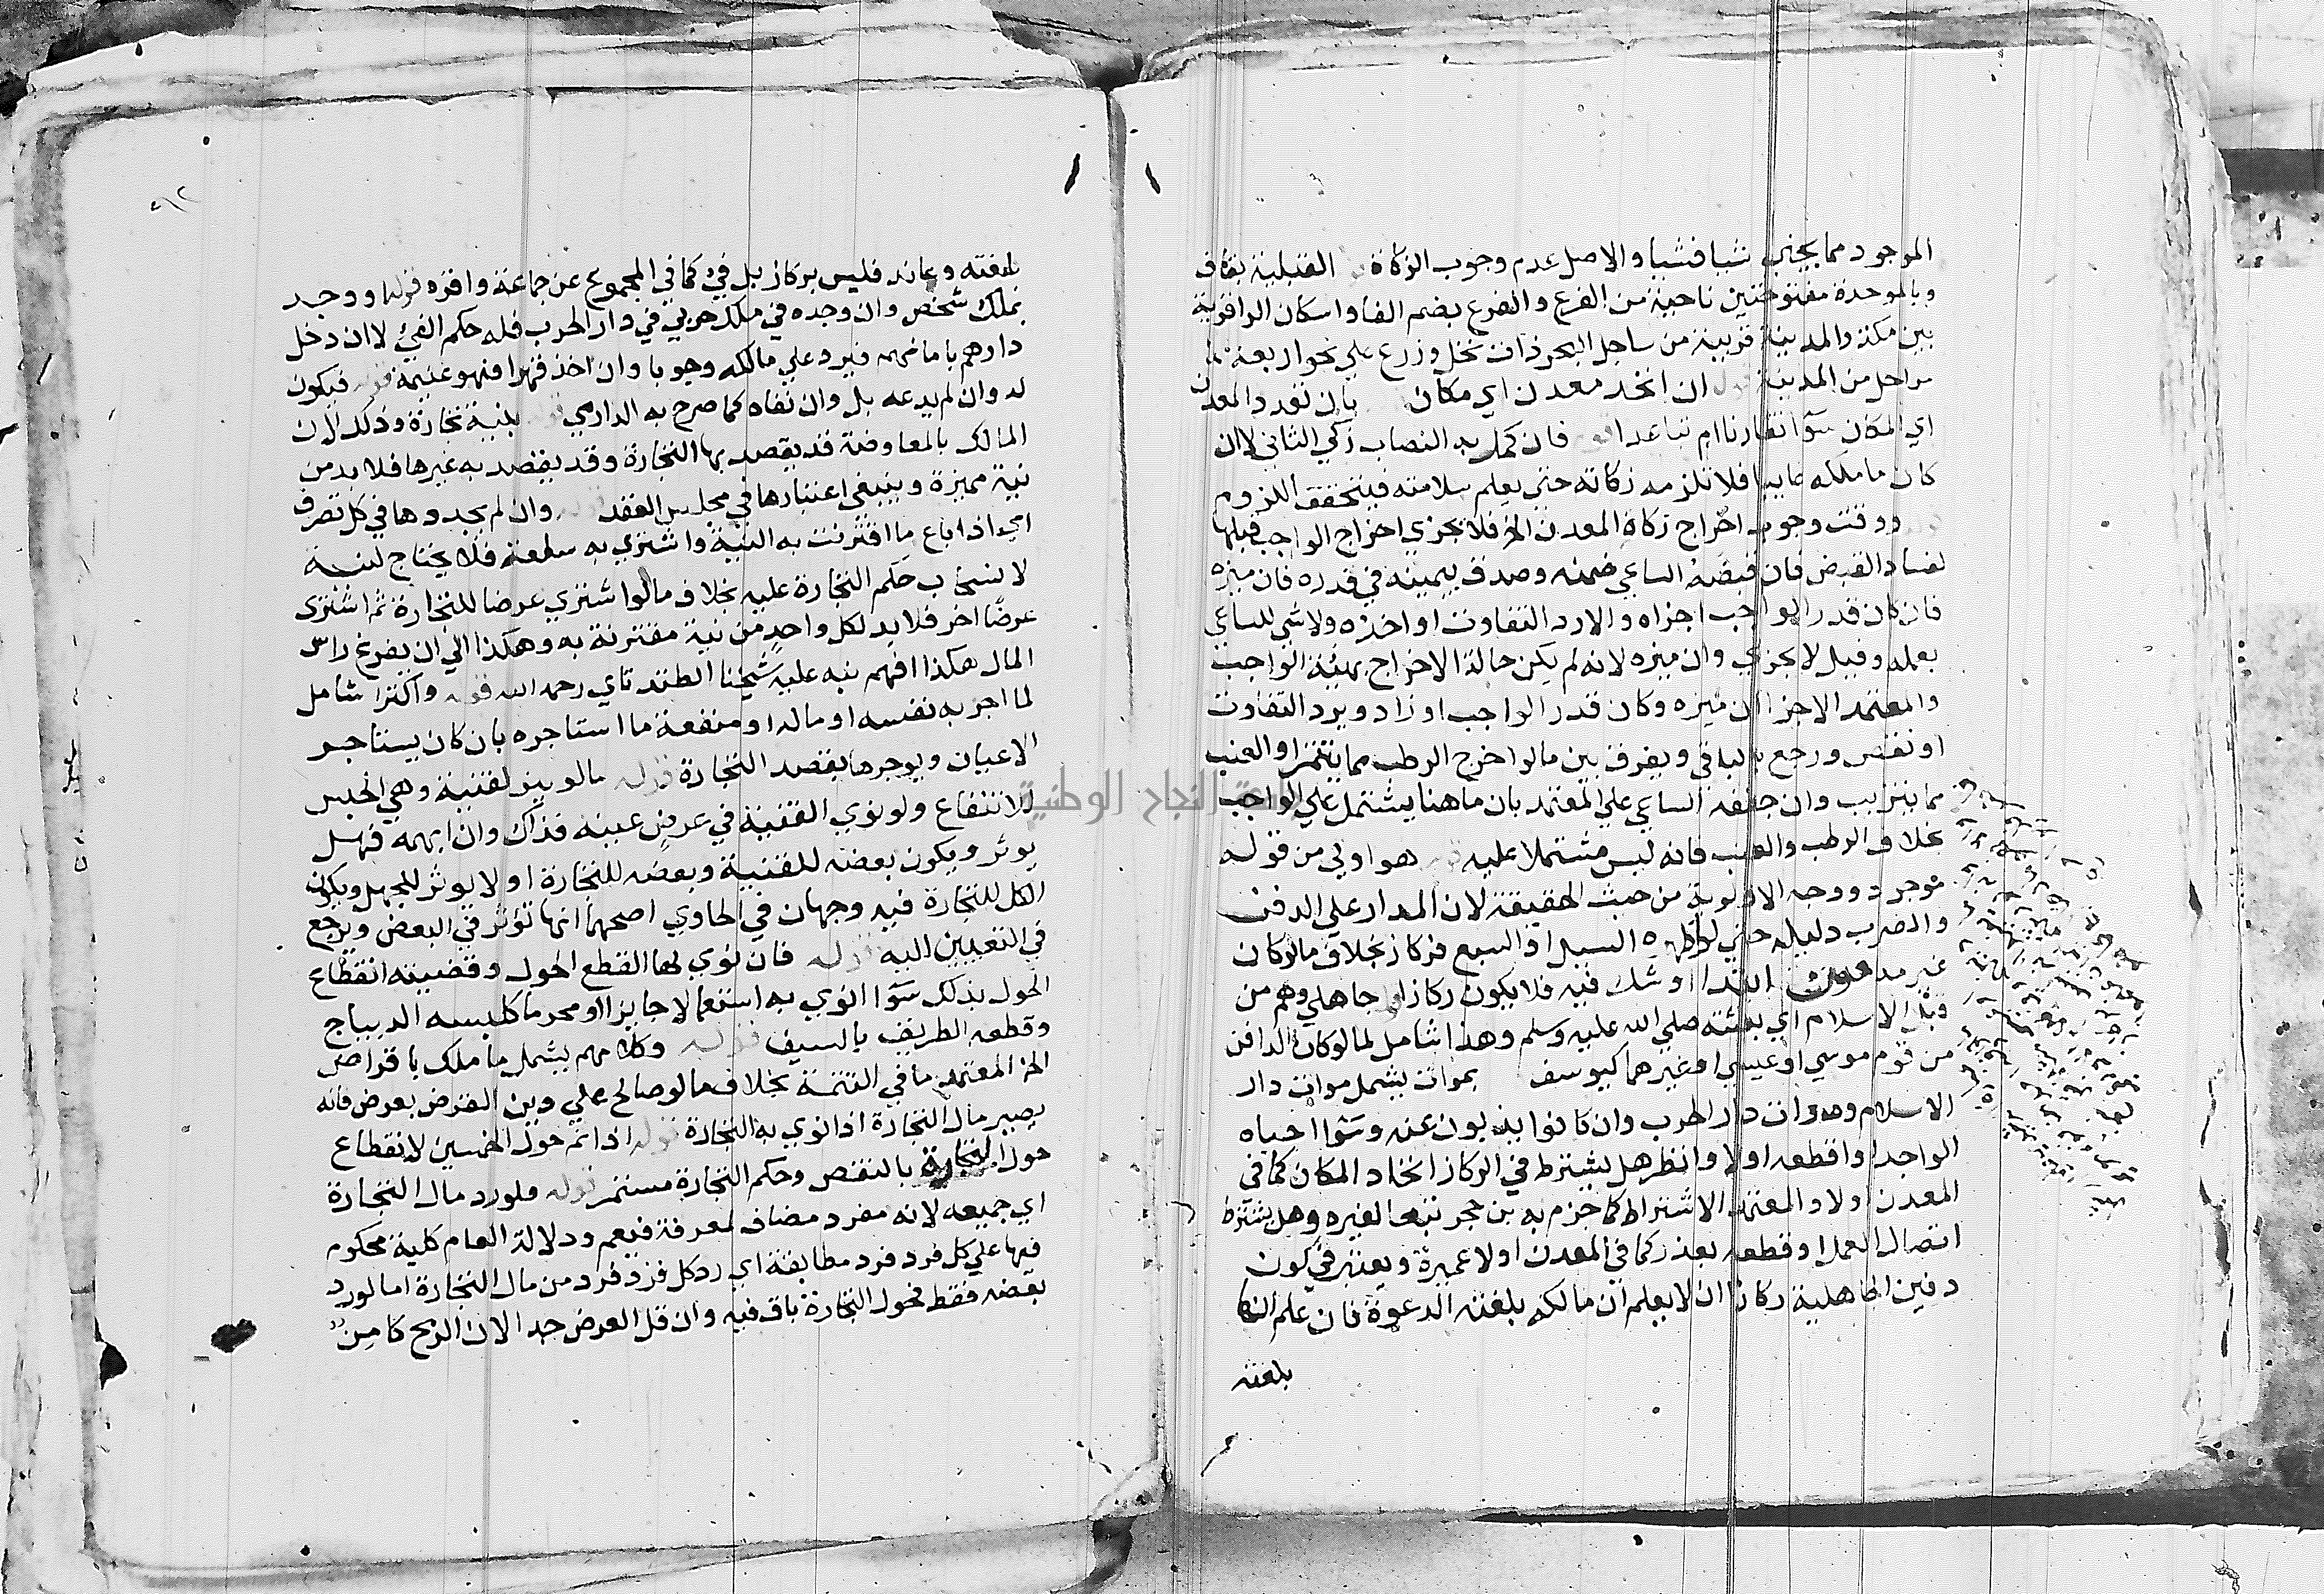 الموجود مما يجني شيا فشيا والاصل عدم وجوب الزكاة القبلية بقاف
وبالموحدة مفتوحتين ناحية من الفرع والفرع بضم الفا واسكان الرا قرية
بين مكة والمدينة قريبة من ساحل البحر ذات نخل وزرع علي نحو اربعة
مراحل من المدينة قوله ان اتحد معدن اي مكان بان تعدد المعدن
اي المكان سوآ تقارنا ام تباعدا فان كمل به النصاب زكي الثاني لا ان
كان ما ملكه غايبا فلا تلزمه زكاته حتي يعلم سلامته فيتحقق اللزوم
ووقت وجوب اخراج زكاة المعدن الخ فلا يجزي اخراج الواجب قبلها
لفساد القبض فان قبضه الساعي ضمنه وصدق بيمينه في قدره فان ميزه
فان كان قدر الواجب اجزاه والا رد التفاوت او اخذه ولا شي للساعي
بعمله وقيل لا يجزي وان ميزه لانه لم يكن حالة الاخراج بهيئة الواجب
والمعتمد الاجزا ان ميزه وكان قدر الواجب او زاد ويرد التفاوت
او نقص ورجع بالباقي ويفرق بين ما لو اخرج الرطب مما يتتمر او العنب
مما يتزبب وان جففه الساعي علي المعتمد بان ما هنا يشتمل علي الواجب
بخلاف الرطب والعنب فانه ليس مشتملا عليه هو اولي من قوله
موجود ووجه الاولوية من حيث الحقيقة لان المدار علي الدفن
والضرب دليله حتي لو اظهره السيل او السبع فركاز بخلاف ما لو كان
غير مدفون ابتدا او شك فيه فلا يكون ركازا جاهلي وهم من
قبل الاسلام اي بعثته صلي الله عليه وسلم وهذا شامل لما لو كان الدافن
من قوم موسي او عيسي او غيرهما كيوسف بموات يشمل موات دار
الاسلام وموات دار الحرب وان كانوا يذبون عنه وسوا احياه
الواجد او اقطعه اولا وانظر هل يشترط في الركاز اتحاد المكان كما في
المعدن اولا والمعتمد الاشتراط كما جزم به بن حجر تبعا لغيره وهل يشترط
اتصال العمل او قطعه بعذر كما في المعدن اولا عميرة ويعتبر في كون
دفين الجاهلية ركازا ان لا يعلم ان مالكه بلغته الدعوة فان علم انها
بلغته
بلغته وعاند فليس بركاز بل فيء كما في المجموع عن جماعة واقره قوله او وجد
بملك شخص وان وجده في ملك حربي في دار الحرب فله حكم الفيئ لا ان دخل
دارهم بامانهم فيرد علي مالكه وجوبا وان اخذ قهرا فهو غنيمة قوله فيكون
له وان لم يدعه بل وان نفاه كما صرح به الدارمي بنية تجارة وذلك لان
المالك بالمعاوضة قد يقصد بها التجارة وقد يقصد به غيرها فلا بد من
نية مميزة وينبغي اعتبارها في مجلس العقد وان لم يجدوها في كل تصرف
اي اذا باع ما اقترنت به النية واشتري به سلعة فلا يحتاج لنية
لانسحاب حكم التجارة عليه بخلاف ما لو اشتري عرضا للتجارة ثم اشتري
عرضا اخر فلا بد لكل واحد من نية مقترنة به وهكذا الي ان يفرغ راس
المال هكذا افهم نبه عليه شيخنا الطندتاي رحمه الله قوله واكترا شامل
لما اجر به نفسه او ماله او منفعة ما استاجره بان كان يستاجر
الاعيان ويوجرها بقصد التجارة قوله ما لو ينو لقنية وهي الحبس
للانتفاع ولو نوي القنية في عرض عينه فذاك وان ابهمه فهل
يوثر ويكون بعضه للقنية وبعضه للتجارة او لا يوثر للجهل ويكون
الكل للتجارة فيه وجهان في الحاوي اصحهما انها تؤثر في البعض ويرجع
في التعيين اليه قوله فان نوي لها القطع الحول وقضيته انقطاع
الحول بذلك سوآ انوي به استعمالا جايزا او محرما كلبسه الديباج
وقطعه الطريق بالسيف قوله وكلامهم يشمل ما ملك باقتراض
الخ المعتمد ما في التتمة بخلاف ما لو صالح علي دين القرض بعرض فانه
يصير مال التجارة اذا نوي به التجارة قوله اذا تم حول الخمسين لانقطاع
حول التجارة بالنقص وحكم التجارة مستمر قوله فلو رد مال التجارة
اي جميعه لانه مفرد مضاف لمعرفة فيعم ودلالة العام كلية محكوم
فيها علي كل فرد فرد مطابقة اي رد كل فرد فرد من مال التجارة اما لو رد
بعضه فقط فحول التجارة باق فيه وان قل العرض جدا لان الربح كامن
جامعة النجاح الوطنية